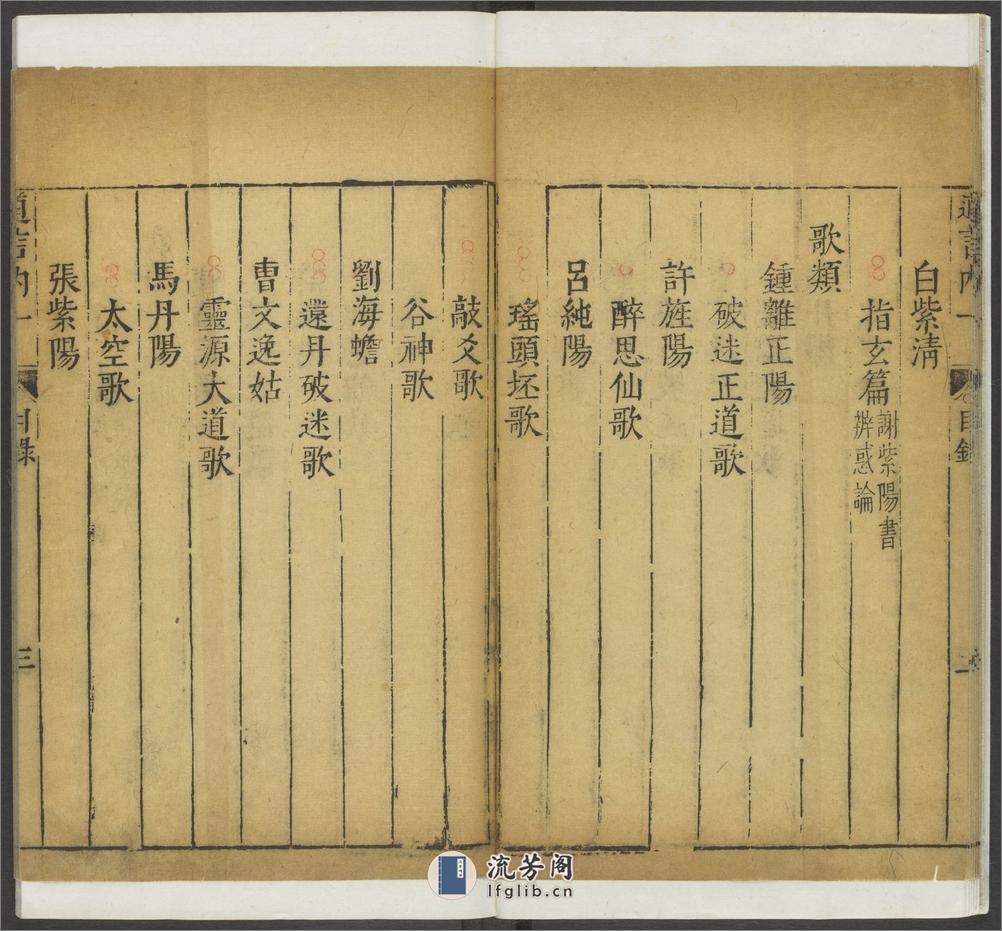 白紫淸
指玄篇 謝紫陽書 辨惑論
歌類
鍾離正陽
破迷正道歌
許旌陽
醉思仙歌
呂純陽
瑤頭坯歌
敲爻歌
谷神歌
劉海蟾
還丹破迷歌
曹文逸姑
靈源大道歌
馬丹陽
太空歌
張紫陽
目錄
三
流芳阁
lfglib.cn